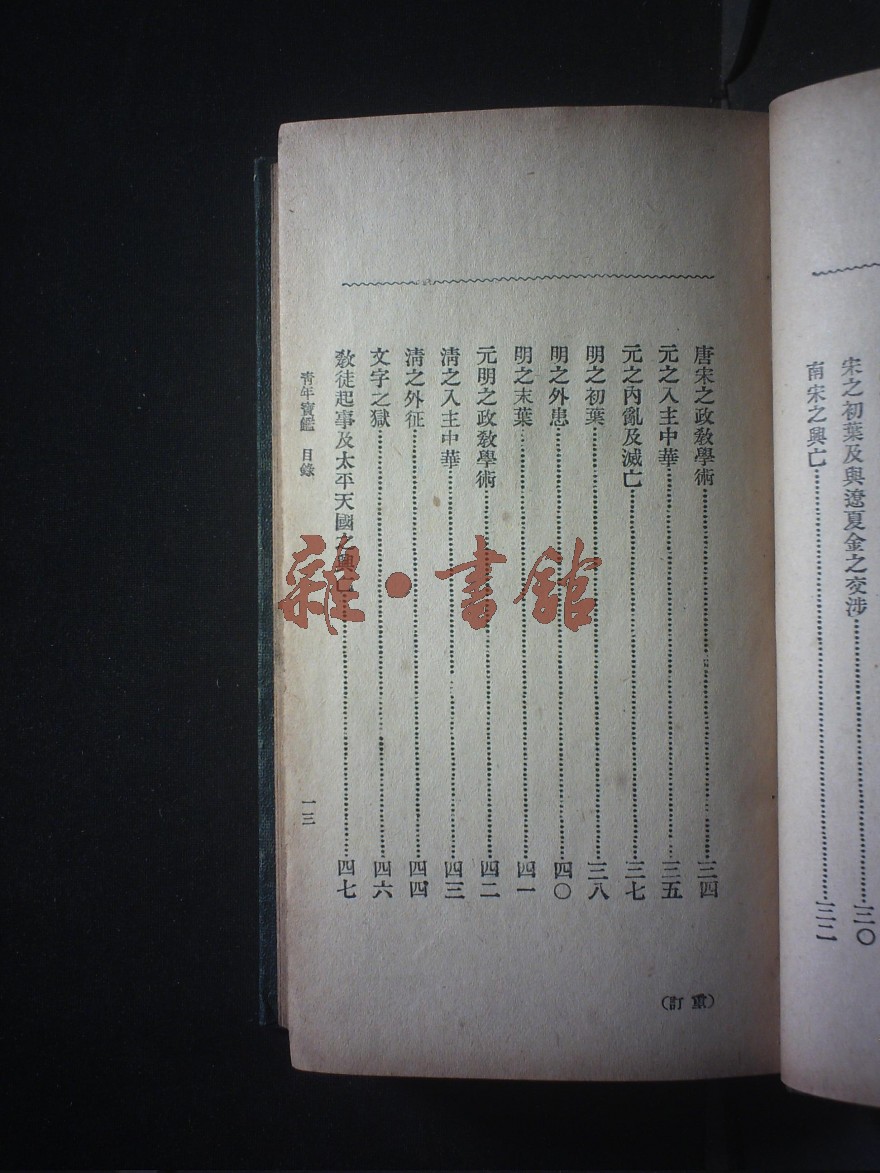 宋之初葉及與遼夏金之交涉…三〇
南宋之興亡…三二
唐宋之政敎學術…三四
元之入主中華…三五
元之內亂及滅亡…三七
明之初葉…三八
明之外患…四〇
明之末葉…四一
元明之政敎學術…四二
淸之入主中華…四三
淸之外征…四四
文字之獄…四六
敎徒起事及太平天國之興亡…四七
靑年寶鑑 目錄
一三
（重訂）
雜·書館